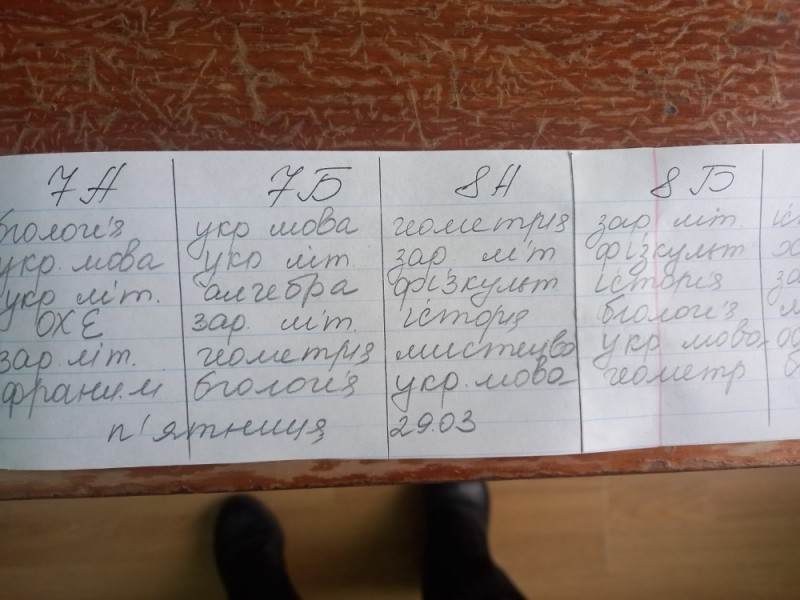 7А 7Б 8А 8Б
біологія укр мова геометрія зар. літ.
укр. мова укр літ. зар. літ фізкульт
укр літ. алгебра фізкульт історія за
ОХЄ зар. літ. історія біологія
зар. літ. геометрія мистецтво укр мова
франц.м біологія укр. мова геометр
п'ятниця 29.03